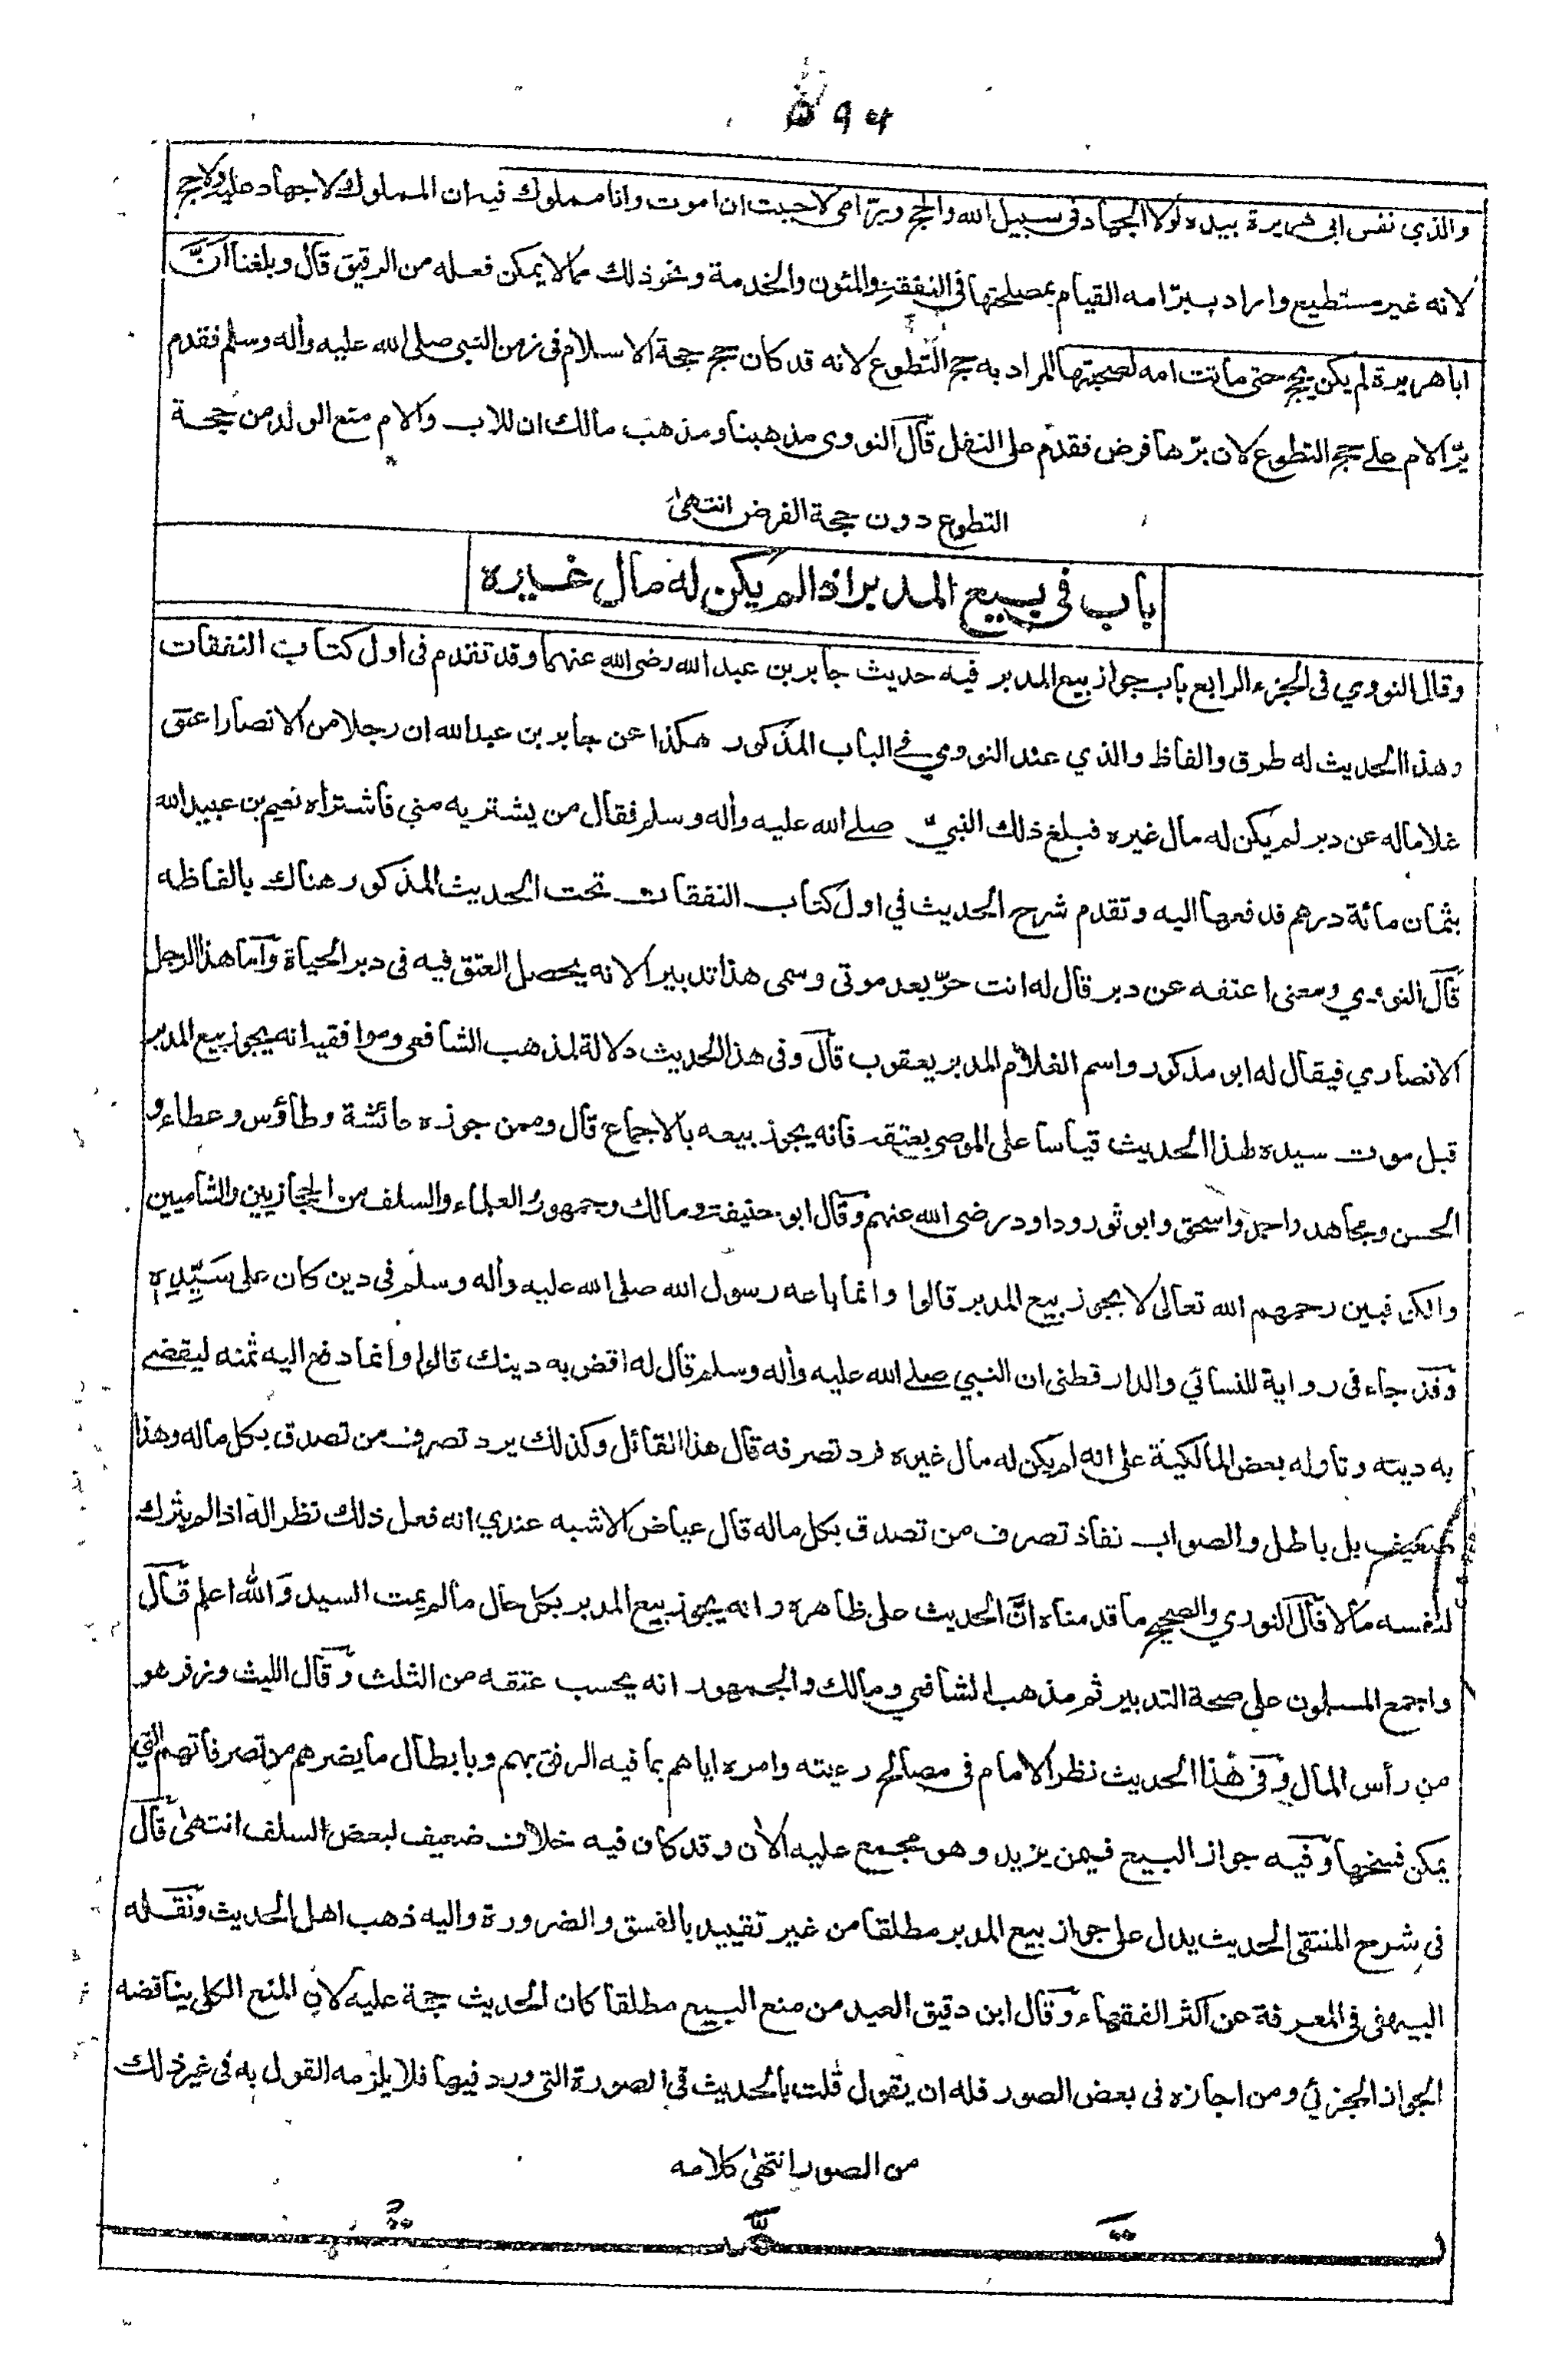 ۵۹۴
والذي نفس ابى هريرة بيده لولا الجهاد فى سبيل الله والحج وبرّ امى لاحببت ان اموت وانا مملوك فيه ان المملوك لاجهاد عليه ولاحج
لانه غير مستطيع واراد ببرّ امه القيام بمصلحتها فى النفقة والمئون والخدمة ونحو ذلك مما لا يمكن فعله من الرقيق قال وبلغنا انَّ
ابا هريرة لم يكن يحج حتى ماتت امه لصحبتها المراد به حج التطوع لانه قد كان حج حجة الاسلام فى زمن النبى صلى الله عليه واله وسلم فقدم
برّ الام على حج التطوع لان برّها فرض فقدم على النفل قال النووى مذهبنا ومذهب مالك ان للاب والام منع الولد من حجة
التطوع دون حجة الفرض انتهىٰ
باب فى بيع المدبر اذا لم يكن له مال غيره
وقال النووي فى الجزء الرابع باب جواز بيع المدبر فيه حديث جابر بن عبد الله رضى الله عنهما وقد تقدم فى اول كتاب النفقات
وهذا الحديث له طرق والفاظ والذي عند النووي في الباب المذكور هكذا عن جابر بن عبد الله ان رجلا من الانصار اعتق
غلاما له عن دبر لم يكن له مال غيره فبلغ ذلك النبيّ صلى الله عليه واله وسلم فقال من يشتريه مني فاشتراه نعيم بن عبيد الله
بثمان مائة درهم فدفعها اليه وتقدم شرح الحديث في اول كتاب النفقات تحت الحديث المذكور هناك بالفاظه
قال النووي ومعنى اعتقه عن دبر قال له انت حرّ بعد موتى وسمى هذا تدبيرا لانه يحصل العتق فيه فى دبر الحياة واما هذا الرجل
الانصاري فيقال له ابو مذكور واسم الغلام المدبر يعقوب قال وفى هذا الحديث دلالة لمذهب الشافعى وموافقيه انه يجوز بيع المدبر
قبل موت سيده لهذا الحديث قياسا على الموصى بعتقه فانه يجوز بيعه بالاجماع قال وممن جوزه عائشة وطاؤس وعطاء و
الحسن ومجاهد واحمد واسحق وابو ثور وداود رضى الله عنهم وقال ابو حنيفة ومالك وجمهور العلماء والسلف من الحجازيين والشاميين
والكوفيين رحمهم الله تعالى لا يجوز بيع المدبر قالوا وانما باعه رسول الله صلى الله عليه واله وسلم فى دين كان على سَيِّدِهٖ
وقد جاء فى رواية للنسائي والدارقطنى ان النبي صلى الله عليه واله وسلم قال له اقض به دينك قالوا وانما دفع اليه ثمنه ليقضى
به دينه وتاوله بعض المالكية على انه لم يكن له مال غيره فرد تصرفه قال هذا القائل وكذلك يرد تصرف من تصدق بكل ماله وهذا
ضعيف بل باطل والصواب نفاذ تصرف من تصدق بكل ماله قال عياض الاشبه عندي انه فعل ذلك نظرا له اذ لم يترك
لنفسه مالا قال النووي والصحيح ما قدمناه انَّ الحديث على ظاهره وانه يجوز بيع المدبر بكل حال ما لم يمت السيد والله اعلم قال
واجمع المسلمون على صحة التدبير ثم مذهب الشافعي ومالك والجمهور انه يحسب عتقه من الثلث وقال الليث وزفر هو
من رأس المال وفى هذا الحديث نظر الامام فى مصالح رعيته وامره اياهم بما فيه الرفق بهم وبابطال ما يضرهم من تصرفاتهم التي
يمكن فسخها وفيه جواز البيع فيمن يزيد وهو مجمع عليه الأن وقد كان فيه خلاف ضعيف لبعض السلف انتهىٰ قال
فى شرح المنتقى الحديث يدل على جواز بيع المدبر مطلقا من غير تقييد بالفسق والضرورة واليه ذهب اهل الحديث ونقله
البيهقى فى المعرفة عن اكثر الفقهاء وقال ابن دقيق العيد من منع البيع مطلقا كان الحديث حجة عليه لان المنع الكلى يناقضه
الجواز الجزئي ومن اجازه فى بعض الصور فله ان يقول قلت بالحديث فى الصورة التى ورد فيها فلا يلزمه القول به فى غير ذلك
من الصور انتهىٰ كلامه